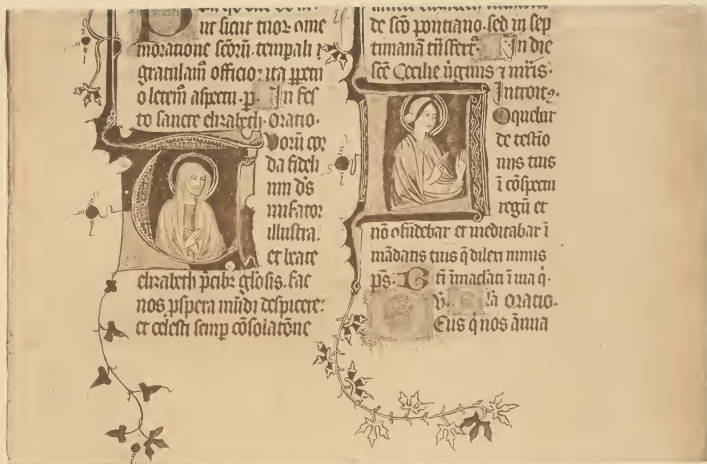 ut sicut tuor͛ ome
moratione scõrũ. tempali ꝛ
gratulam̃ officio: ita ꝑpetu
o letem̃ aspectu. ꝑ. In fes
to sancte elyzabeth. oratio.
Torũ cor
da fideli
um dṡ
miserator
illustra.
et beate
elyzabeth p̃cibꝫ gl̃osis. fac
nos ꝓspera mũdi despicere:
et celesti semꝑ cõsolatõne
de scõ pontiano. sed in sep
timana trãsfert᷑. In die
sc̃e Cecilie ũginis ꝛ mr̃is.
Introitꝯ.
Loquebar
de testio
niis tuis
ĩ cõspectu
regũ et
nõ cõfũdebar et meditabar ĩ
mãdatis tuis q̃ dilexi nimis
pṡ. Bti ĩmaclati ĩ uia q̃.
oratio.
Deus q̃ nos ãnua